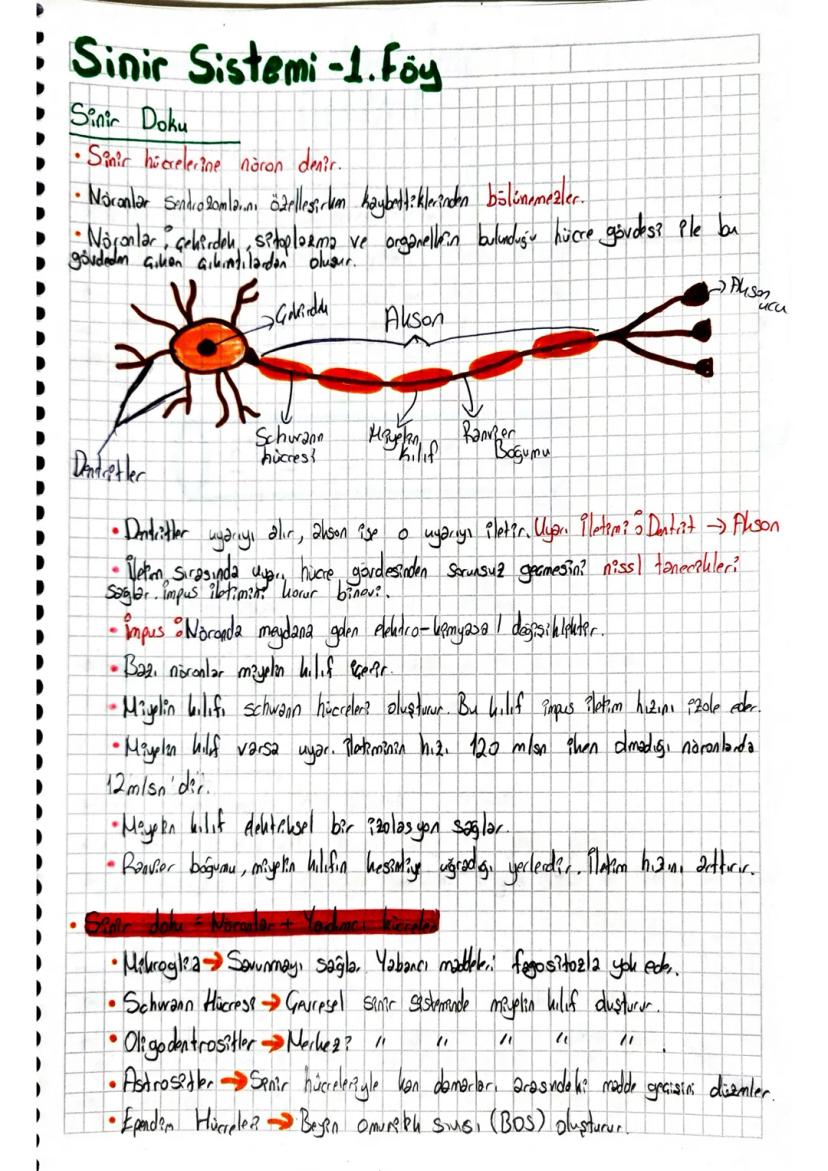 Sinir Sistemi - 1. Föy
Sinir Doku
• Sinir hücrelerine nöron denir.
• Nöronlar sendrozomlarını özelleşirken kaybettiklerinden bölünemezler.
• Nöronlar; çekirdek, sitoplazma ve organellerin bulunduğu hücre gövdesi ile bu
gövdeden çıkan çıkıntılardan oluşur.
→Çekirdek
Akson
→Akson
ucu
Schwann
hücresi
Miyelin
kılıf
Ranvier
Boğumu
Dentritler
• Dentritler uyarıyı alır, akson ise o uyarıyı iletir. Uyarı İletimi: Dentrit → Akson
• İletim sırasında uyarı hücre gövdesinden sorunsuz geçmesini nissl tanecikleri
sağlar. İmpus iletimini korur binevi.
• İmpus: Nöronda meydana gelen elektro-kimyasal değişikliktir.
• Bazı nöronlar miyelin kılıf içerir.
• Miyelin kılıfı schwann hücreleri oluşturur. Bu kılıf impus iletim hızını izole eder.
• Miyelin kılıf varsa uyarı iletiminin hızı 120 m/sn iken olmadığı nöronlarda
12m/sn'dir.
• Miyelin kılıf elektriksel bir izolasyon sağlar.
• Ranvier boğumu, miyelin kılıfın kesintiye uğradığı yerlerdir. İletim hızını arttırır.
• Sinir doku = Nöronlar + Yardımcı hücreler
• Mikroglia → Savunmayı sağlar. Yabancı maddeleri fagositozla yok eder.
• Schwann Hücresi → Çevresel sinir sisteminde miyelin kılıf oluşturur.
• Oligodentrositler → Merkezi " " " " " .
• Astrositler → Sinir hücreleriyle kan damarları arasındaki madde geçişini düzenler.
• Ependim Hücreleri → Beyin omurilik sıvısı (BOS) oluşturur.